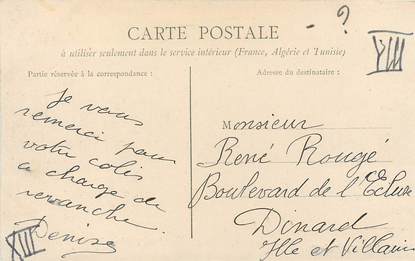 - ?
CARTE POSTALE
à utiliser seulement dans le service intérieur (France, Algérie et Tunisie)
XIII
Partie réservée à la correspondance :
Adresse du destinataire :
Je vous
remerci pour
votre colis
a charge de
revanche.
Denise
XIII
Monsieur
René Rougé
Boulevard de l'Ecluse
Dinard
Ille et Villaine